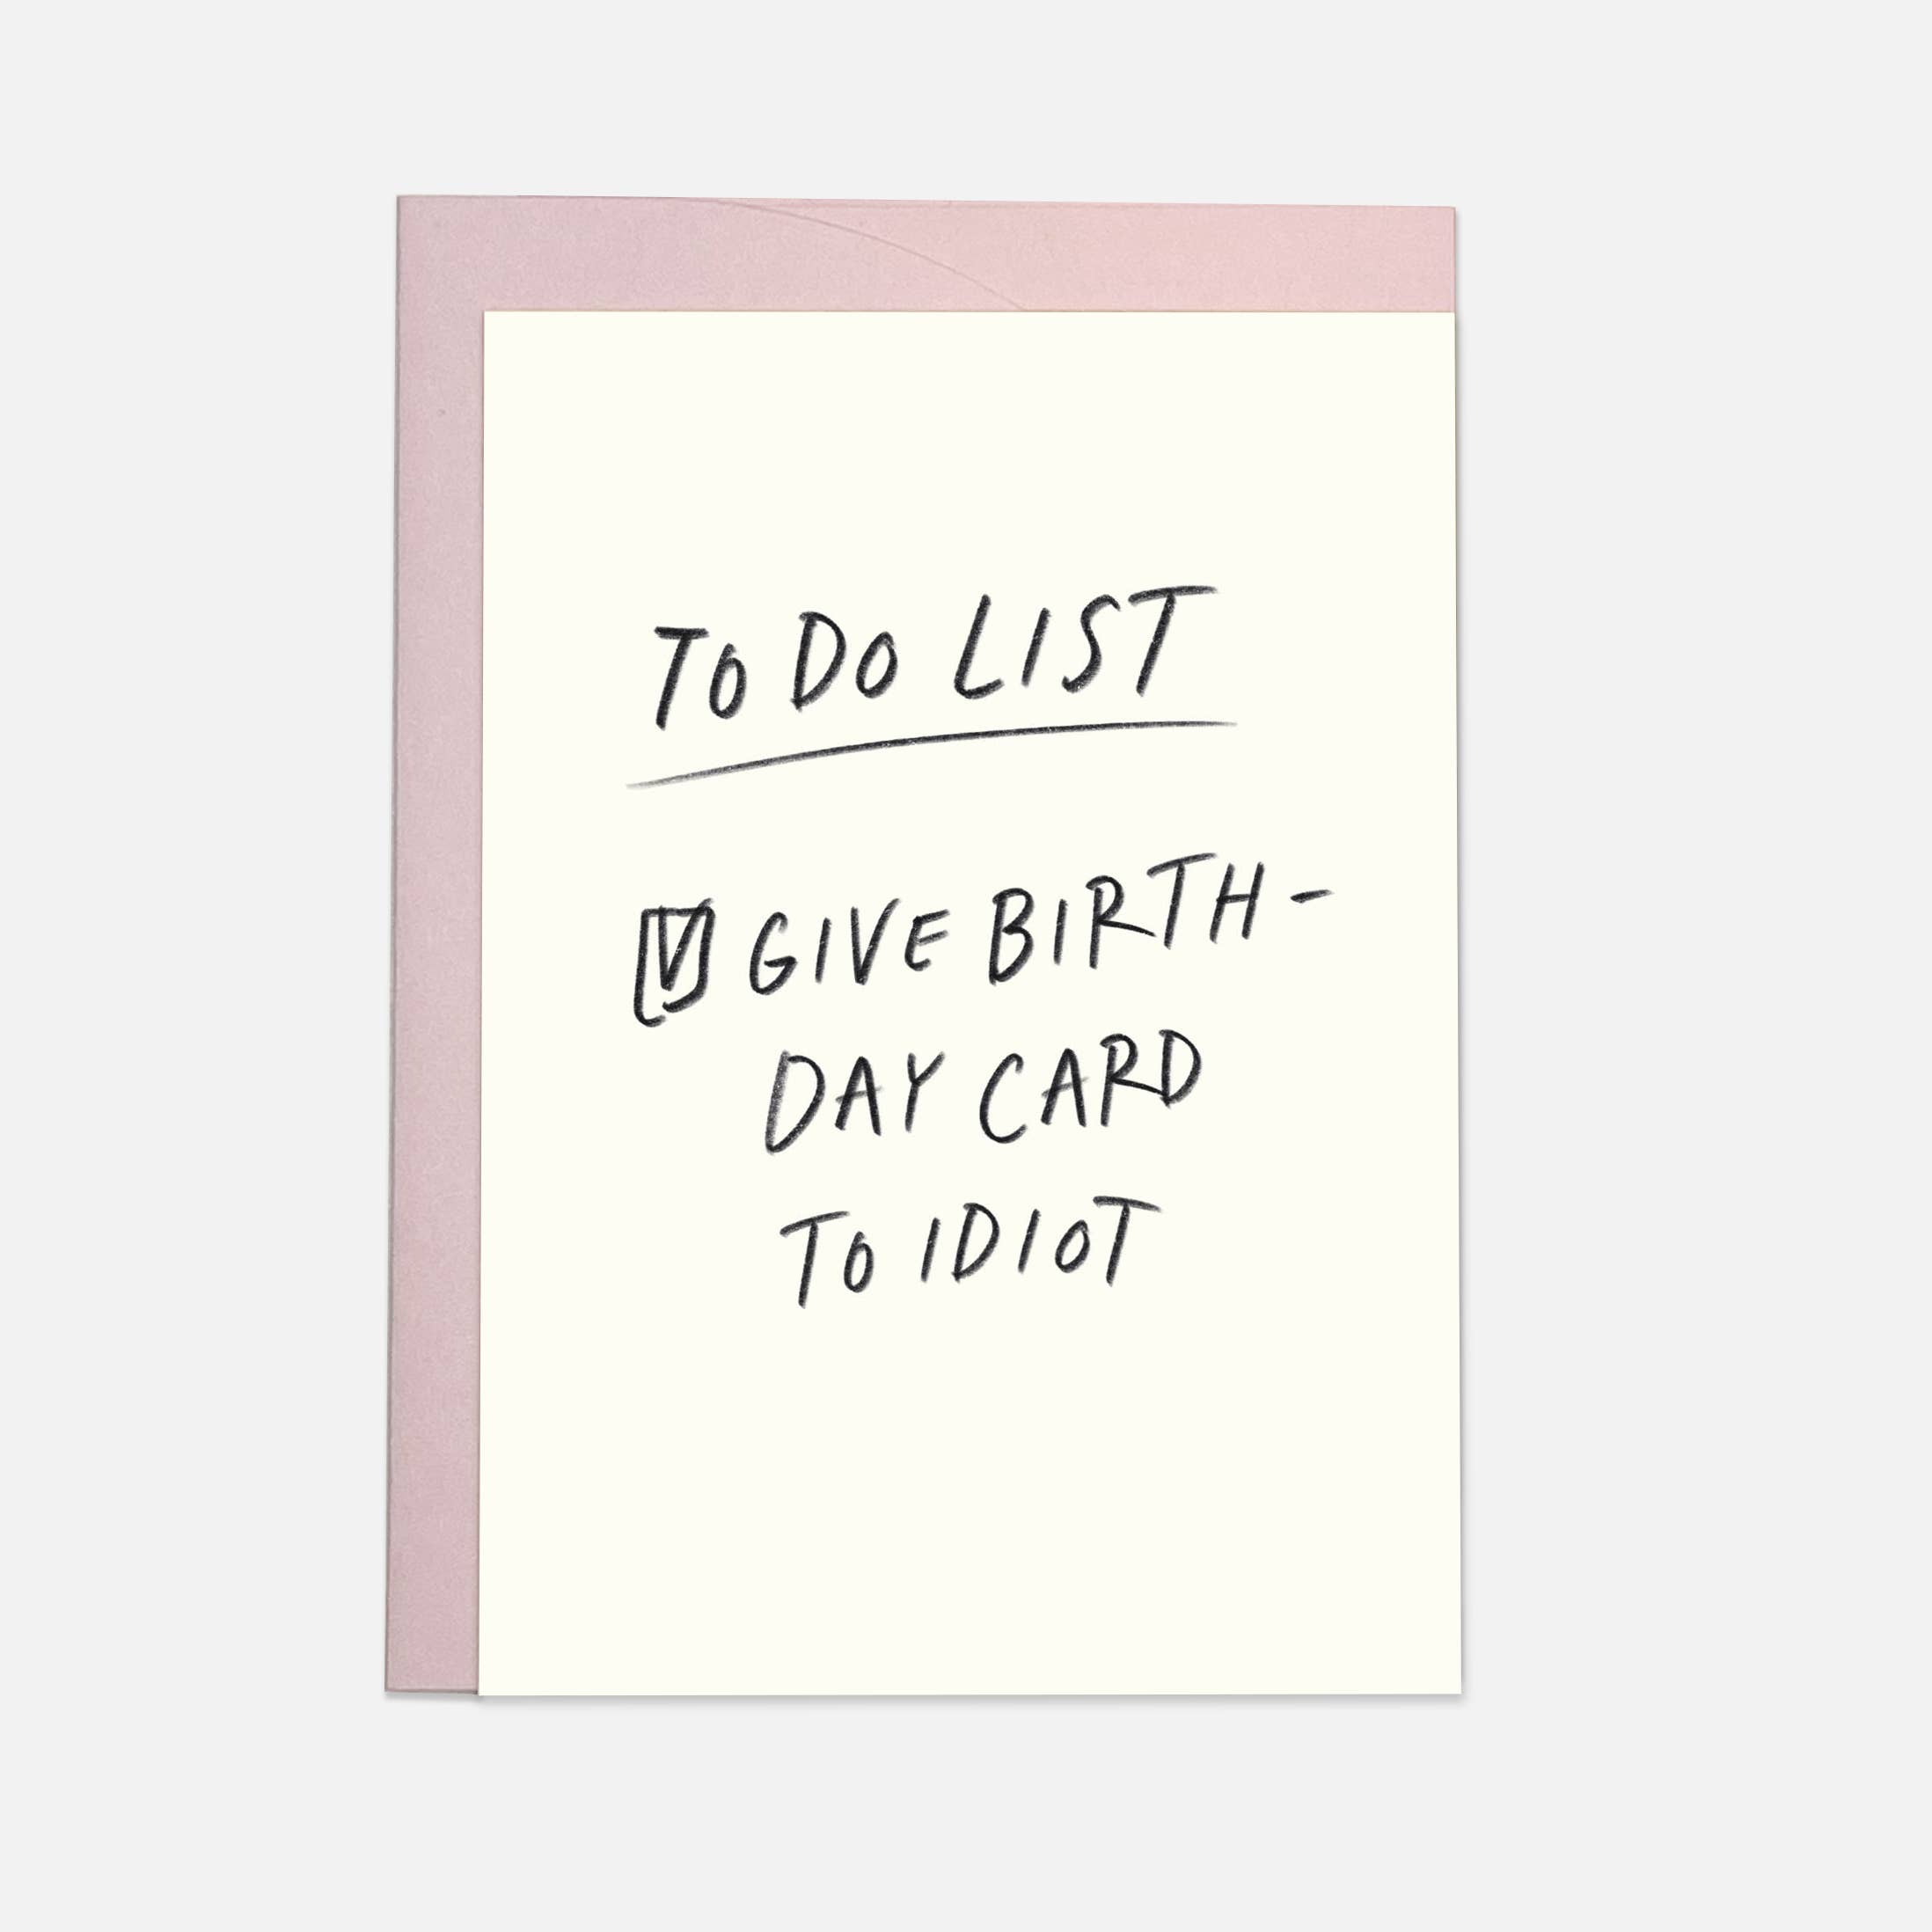 TO DO LIST
☑ GIVE BIRTH-
DAY CARD
TO IDIOT